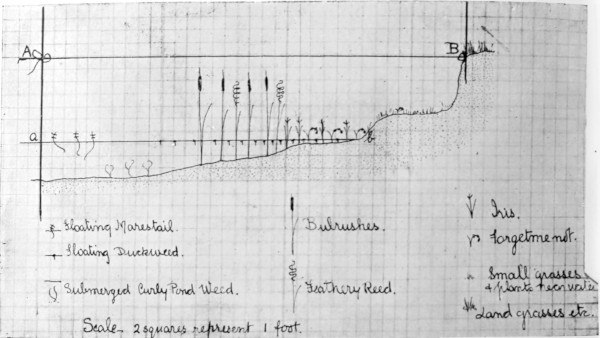 A
B
a
b
Floating Marestail.
Floating Duckweed.
Submerged Curly Pond Weed.
Bulrushes.
Feathery Reed.
Iris.
Forgetmenot.
Small grasses
& plants near water
Land grasses etc.
Scale. 2 squares represent 1 foot.